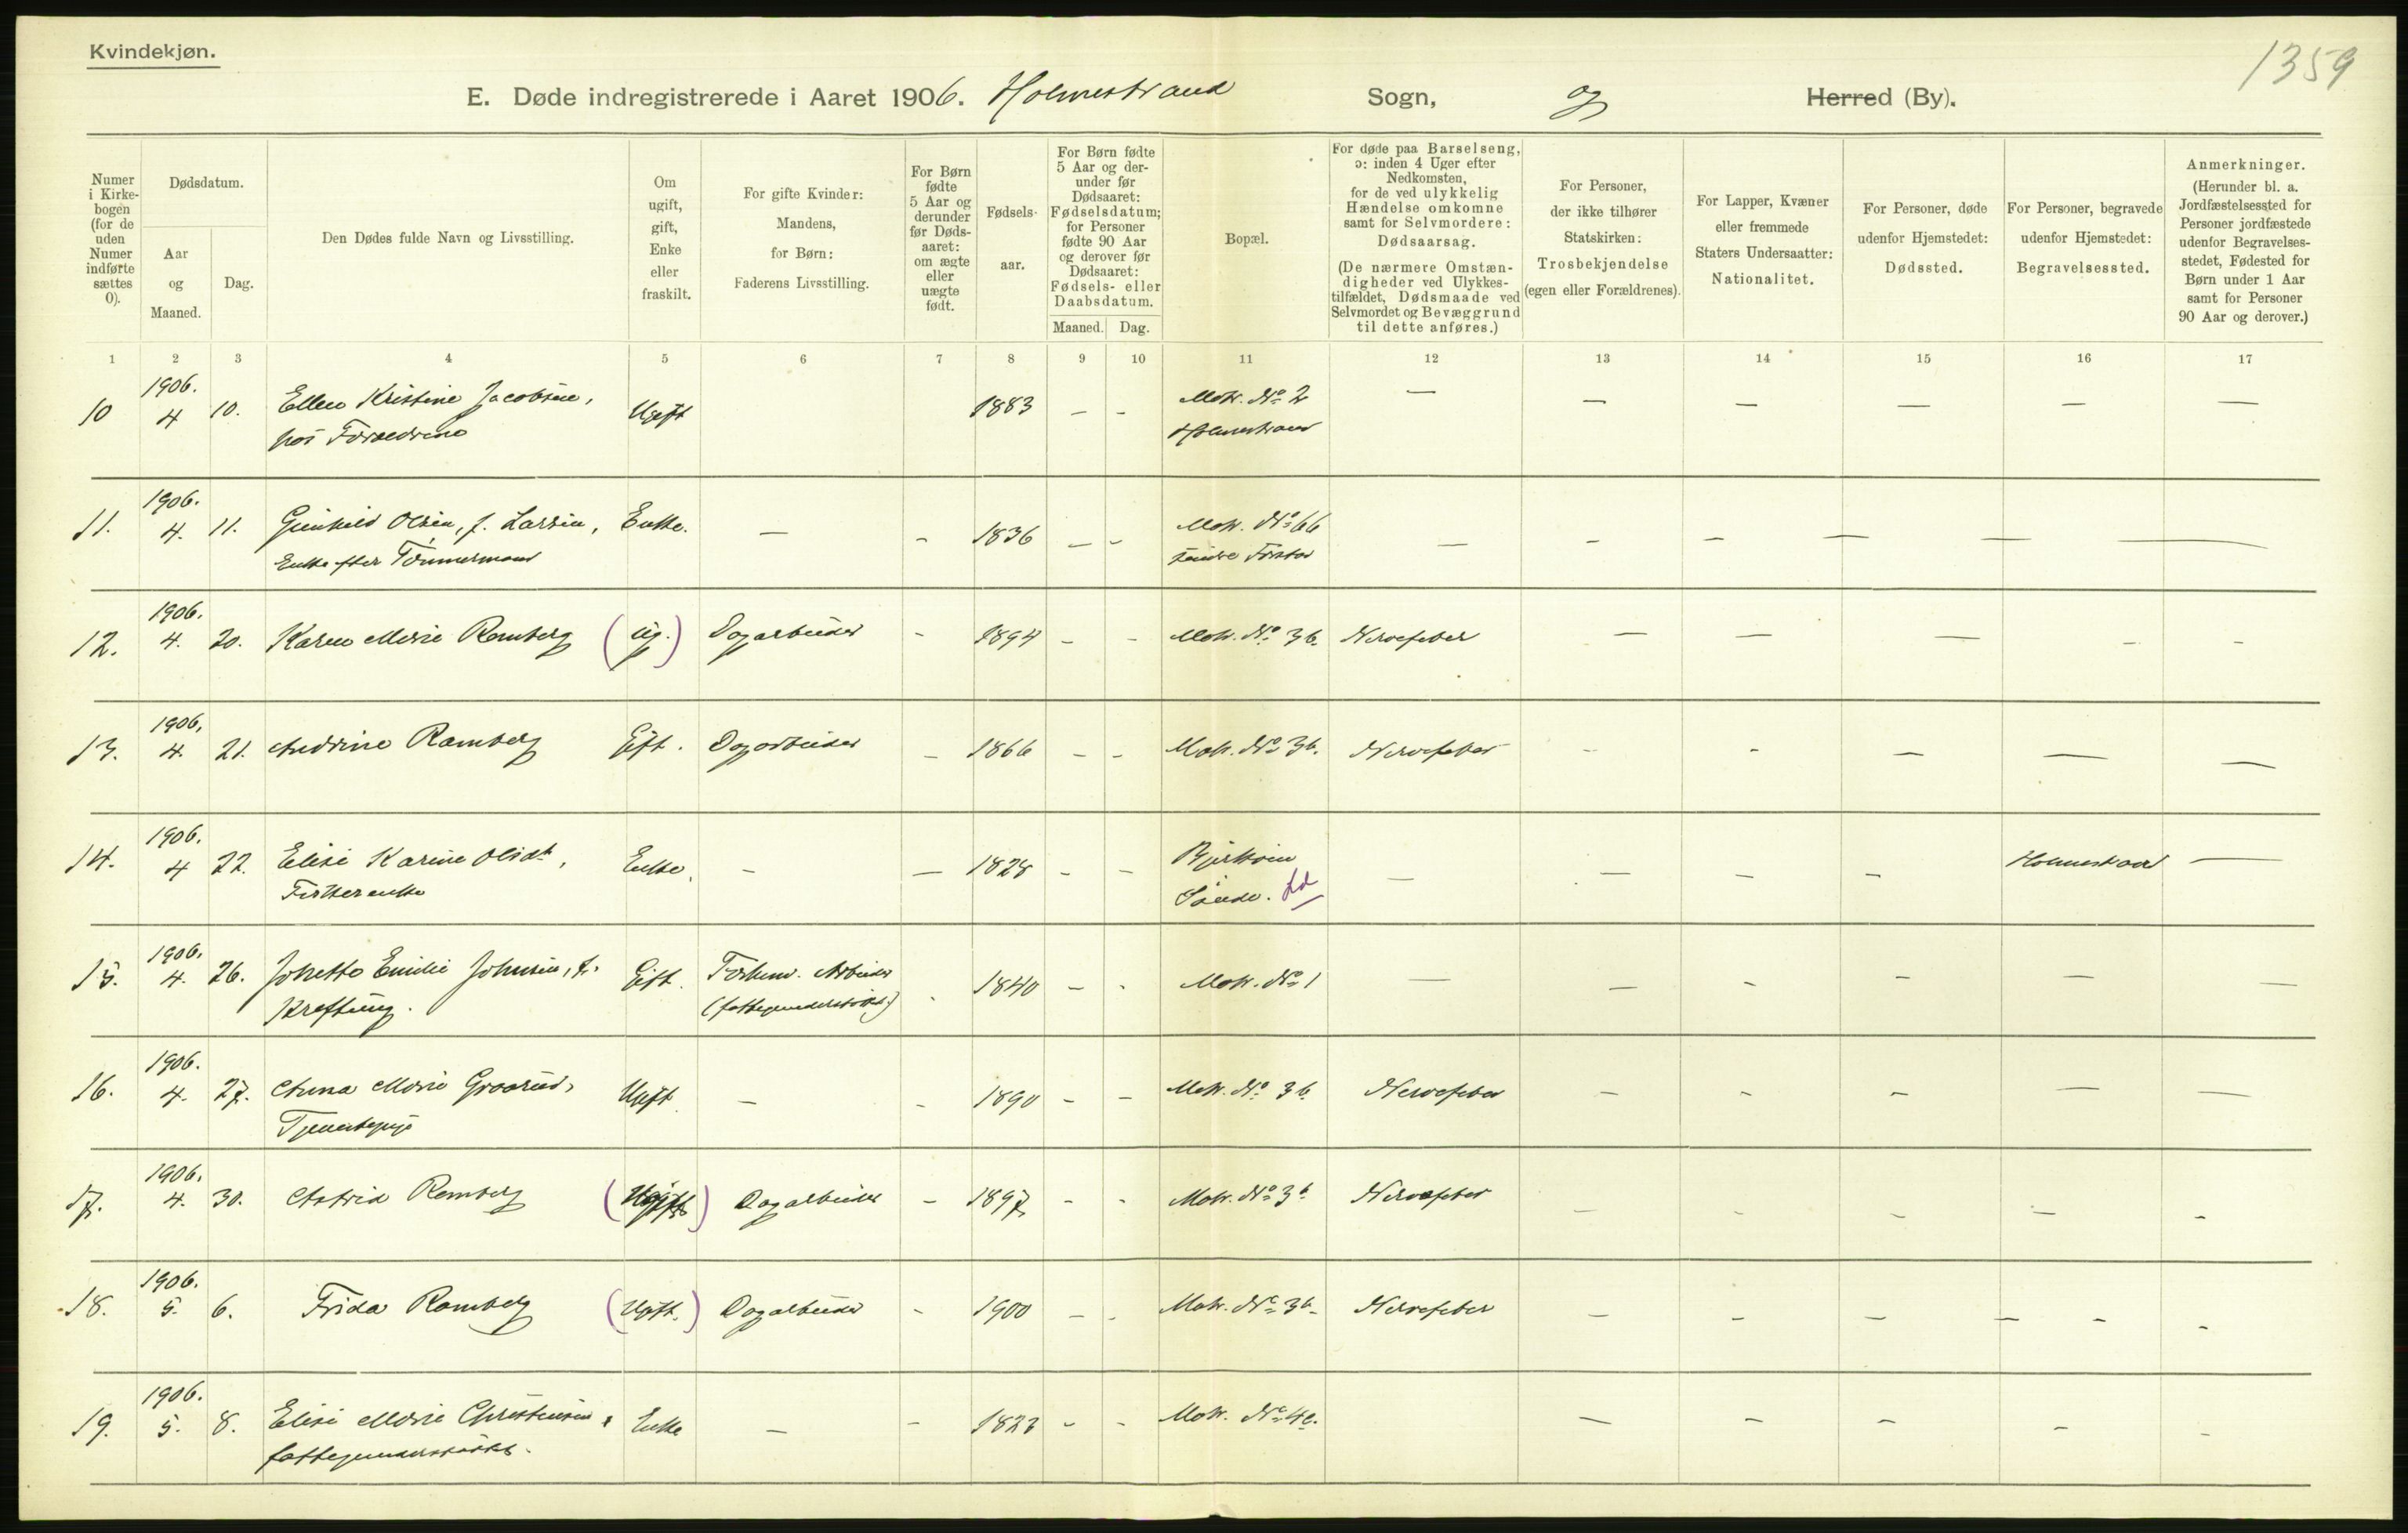 Kvindekjøn.
1359
E. Døde indregistrerede i Aaret 1906. Holmestrand Sogn, og Herred (By).
Numer i Kirkebogen (for de uden Numer indførte sættes 0).
Dødsdatum.
Aar og Maaned.
Dag.
Den Dødes fulde Navn og Livsstilling.
Om ugift, gift, Enke eller fraskilt.
For gifte Kvinder: Mandens, for Børn: Faderens Livsstilling.
For Børn fødte 5 Aar og derunder før Dødsaaret: om ægte eller uægte født.
Fødselsaar.
For Børn fødte 5 Aar og derunder før Dødsaaret: Fødselsdatum; for Personer fødte 90 Aar og derover før Dødsaaret: Fødsels- eller Daabsdatum.
Maaned. Dag.
Bopæl.
For døde paa Barselseng, ɔ: inden 4 Uger efter Nedkomsten, for de ved ulykkelig Hændelse omkomne samt for Selvmordere: Dødsaarsag. (De nærmere Omstændigheder ved Ulykkestilfældet, Dødsmaade ved Selvmordet og Bevæggrund til dette anføres.)
For Personer, der ikke tilhører Statskirken: Trosbekjendelse (egen eller Forældrenes).
For Lapper, Kvæner eller fremmede Staters Undersaatter: Nationalitet.
For Personer, døde udenfor Hjemstedet: Dødssted.
For Personer, begravede udenfor Hjemstedet: Begravelsessted.
Anmerkninger. (Herunder bl. a. Jordfæstelsessted for Personer jordfæstede udenfor Begravelsesstedet, Fødested for Børn under 1 Aar samt for Personer 90 Aar og derover.)
1 2 3 4 5 6 7 8 9 10 11 12 13 14 15 16 17
1906.
10 4 10. Ellen Kristine Jacobsen, Ugift 1883 – – Matr. No 2 — — — — — —
hos Forældrene Holmestrand
1906.
11. 4. 11. Gunhild Olsen, f. Larsen, Enke. — – 1836 – – Matr. No 66 — – — — —
Enke efter Tømmermand søndre Forstad
1906.
12. 4. 20. Karen Marie Ramberg (ug.) Dagarbeider – 1894 – – Matr. No 36. Nervefeber — — — – –
1906.
13. 4. 21. Andrine Ramberg Gift. Dagarbeider – 1866 – – Matr. No 36. Nervefeber – – — — —
1906.
14. 4 22. Elise Karine Olsdt, Enke. – — 1828 – – — — – – Holmestrand —
Sande. Ld
1906.
15. 4. 26. Emilie Johnsen, f. Gift. Forhenv. Arbeider - 1840 – - Matr. No 1 — — – – — —
Krefting. (fattigunderstøttet)
1906.
16. 4. 27. Anna Marie Graarud, Ugift. — – 1890 – – Matr. No 36 Nervefeber – – – — —
Tjenestepige
1906.
17. 4. 30. Astrid Ramberg (Ugift) Dagarbeider – 1897 - - Matr. No 36 Nervefeber – – – — –
1906.
18. 5. 6. Frida Ramberg (Ugift.) Dagarbeider – 1900 – - Matr. No 36. Nervefeber – – – – – –
1906.
19. 5. 8. Elise Marie Christensen, Enke — – 1823 – - Matr. No — – – – -
fattigunderstøttet.